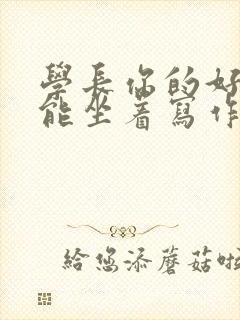 學長你的好
能坐着寫作
給您添蘑菇啦